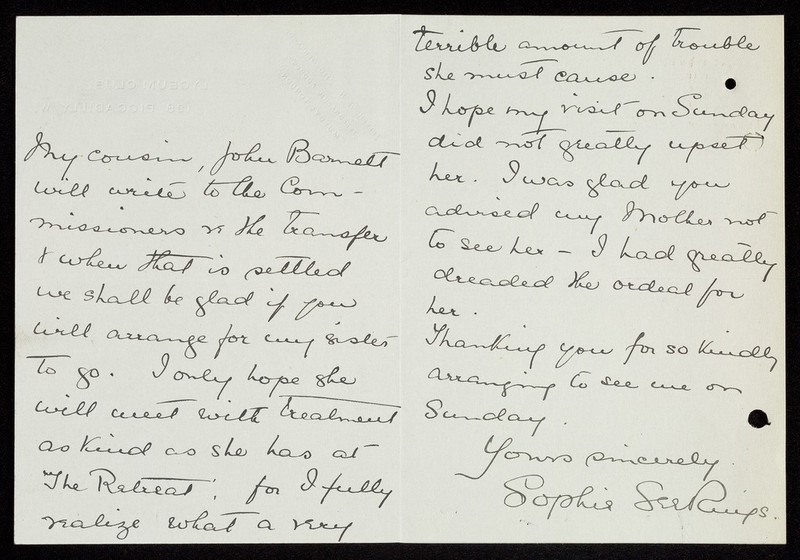 My cousin, John Barnett
will write to the Com-
missioners re the transfer
& when that is settled
we shall be glad if you
will arrange for my sister
to go. I only hope she
will meet with treatment
as kind as she has at
"The Retreat", for I fully
realize what a very
terrible amount of trouble
she must cause.
I hope my visit on Sunday
did not greatly upset
her. I was glad you
advised my Mother not
to see her – I had greatly
dreaded the ordeal for
her.
Thanking you for so kindly
arranging to see me on
Sunday.
Yours sincerely.
Sophie SeeKings.